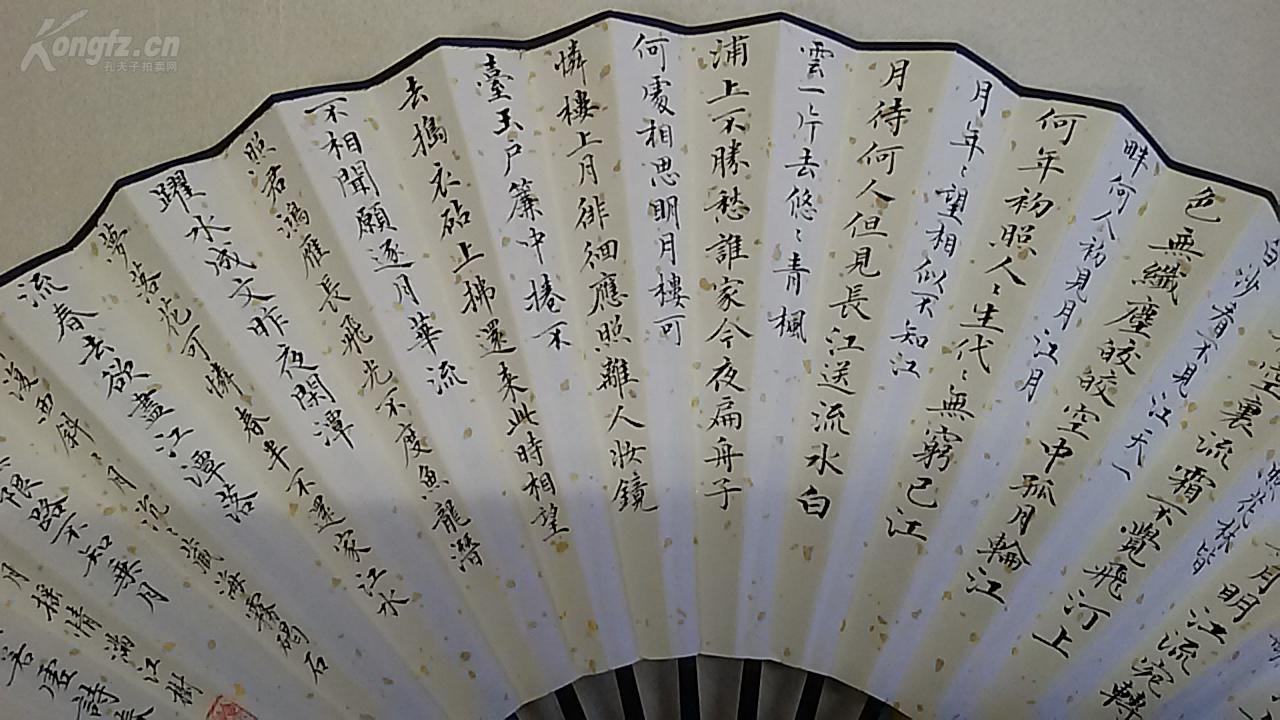 Kongfz.cn
孔夫子拍卖网
月明
江流宛轉
照花林皆
空裏流霜不覺飛汀上
白沙看不見江天一
色無纖塵皎皎空中孤月輪江
畔何人初見月江月
何年初照人〻生代〻無窮已江
月年〻望相似不知江
月待何人但見長江送流水白
雲一片去悠〻青楓
浦上不勝愁誰家今夜扁舟子
何處相思明月樓可
憐樓上月徘徊應照離人妝鏡
臺玉戶簾中捲不
去搗衣砧上拂還来此時相望
不相聞願逐月華流
照君鴻雁長飛光不度魚龍潛
躍水成文昨夜閑潭
夢落花可憐春半不還家江水
流春去欲盡江潭落
復西斜〻月沉〻藏海霧碣石
限路不知乘月
月搖情滿江樹
唐詩